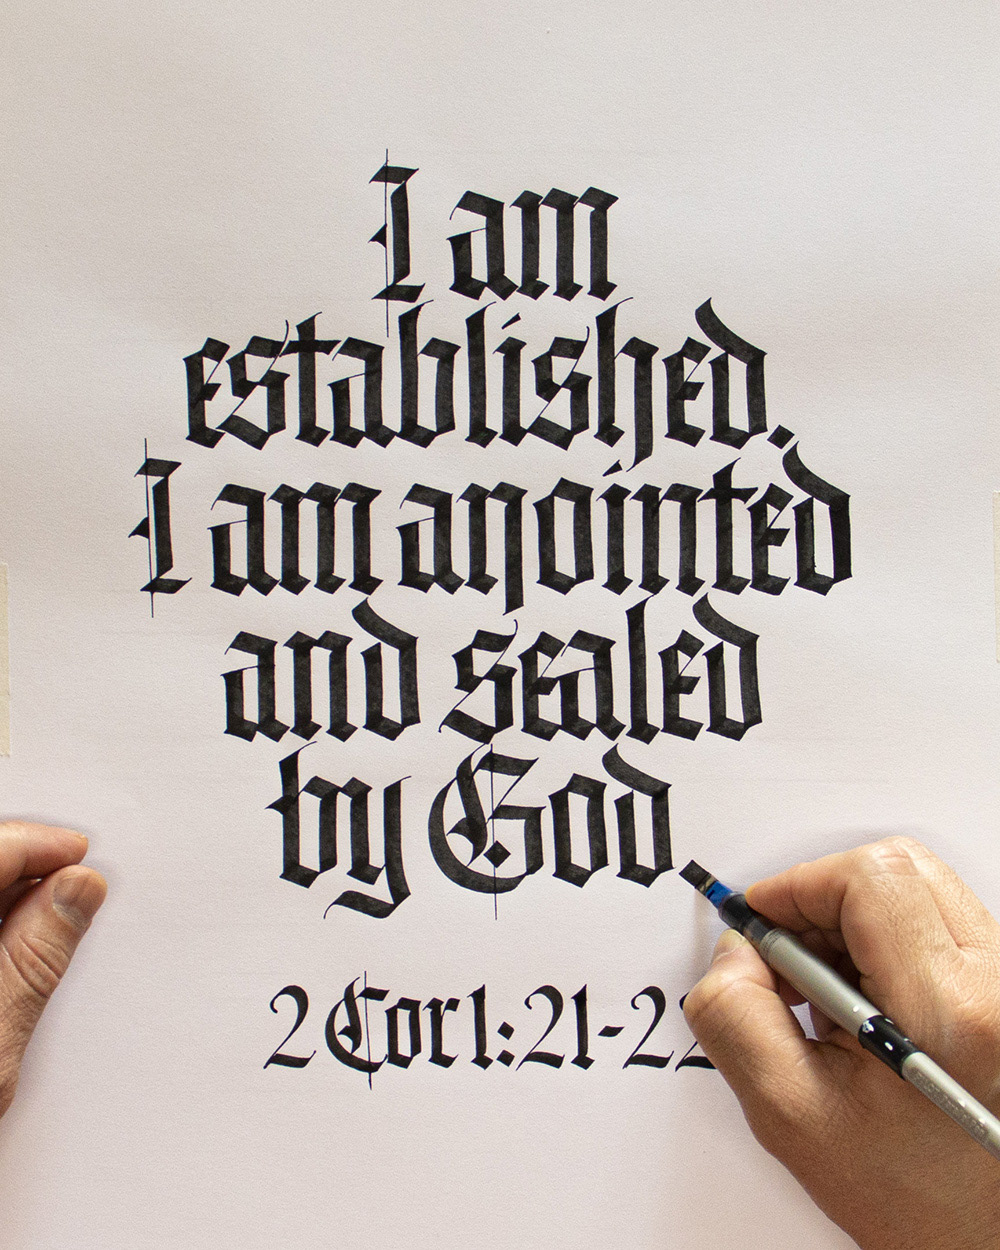 I am
established.
I am anointed
and sealed
by God.
2 Cor 1:21-22